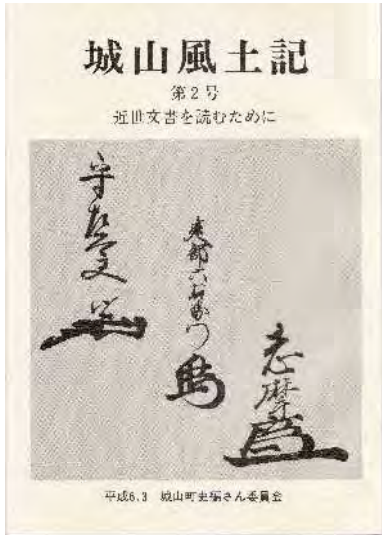 城山風土記
第2号
近世文書を読むために
志摩
平成6.3 城山町史編さん委員会